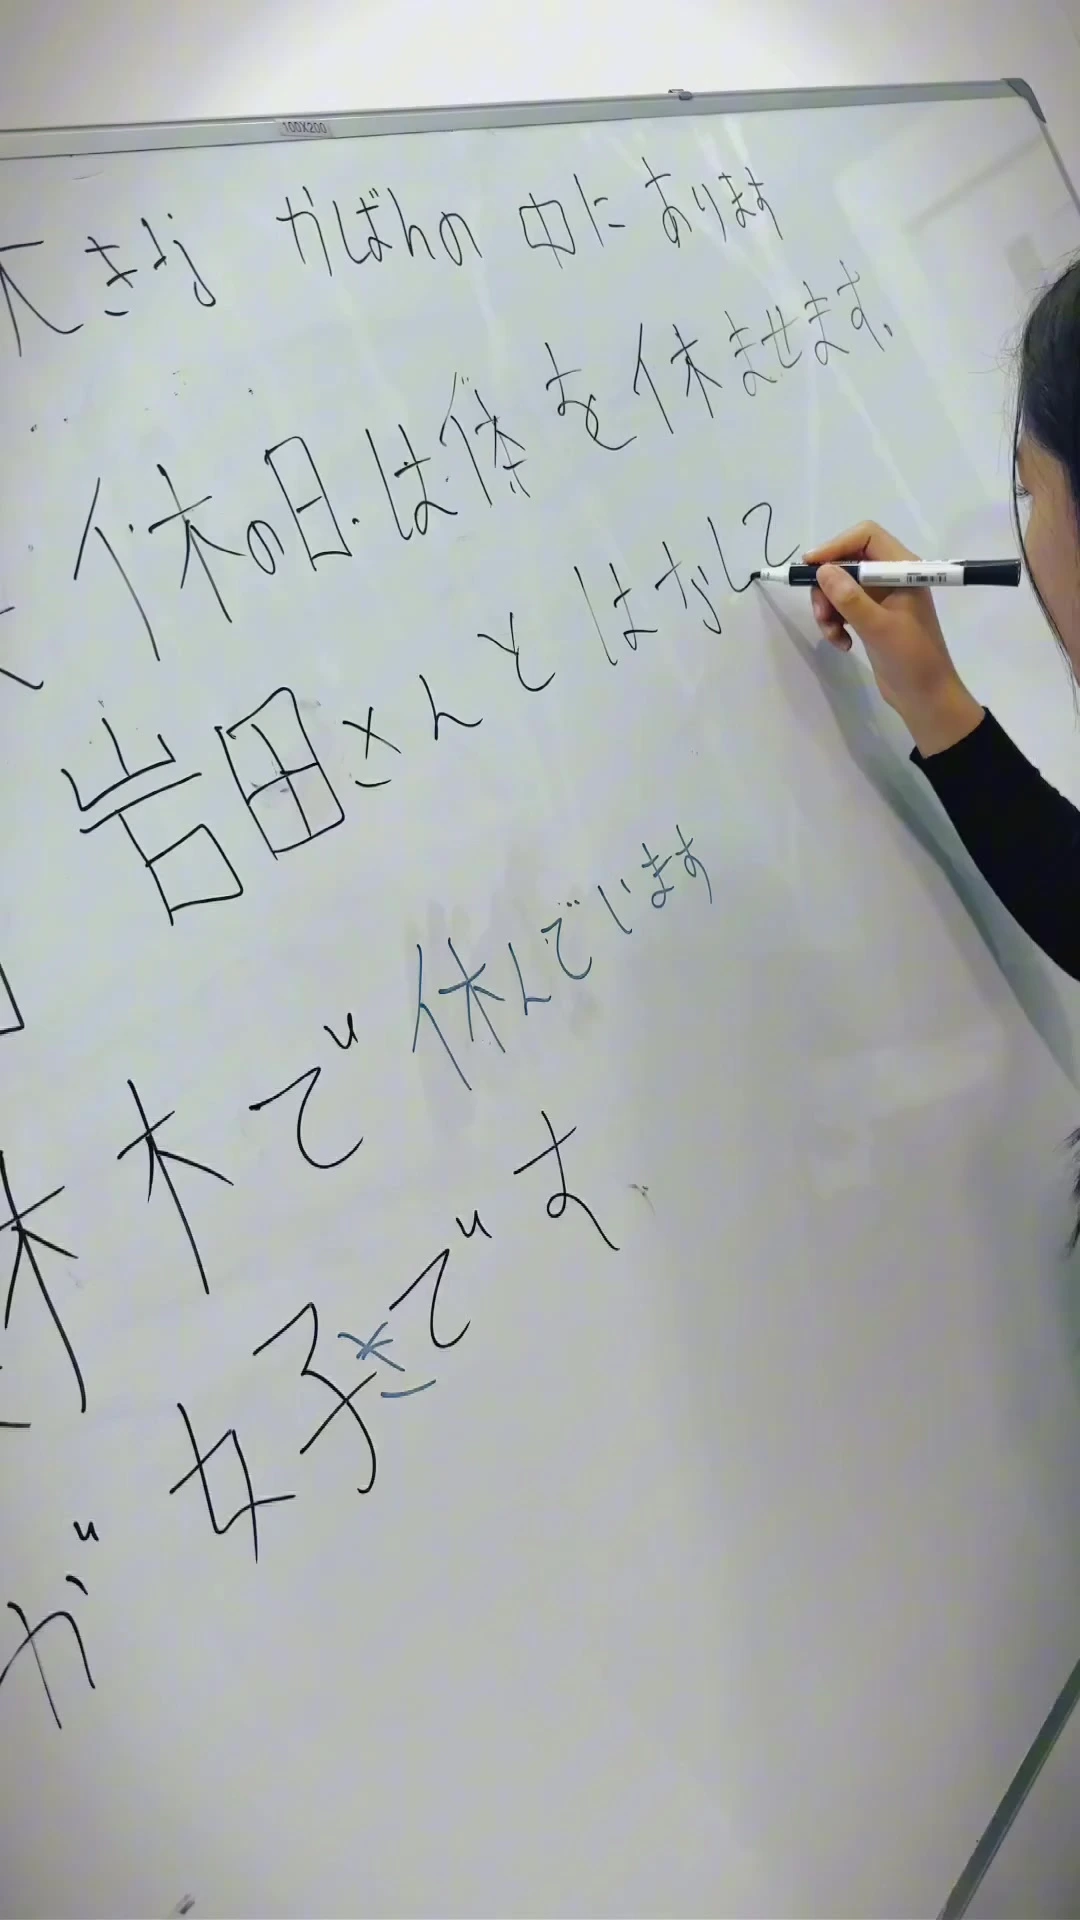 100X200
大きな かばんの 中に あります
休の日は体を休ませます。
岩田さんと はなして
木で 休んでいます
が 女子さです